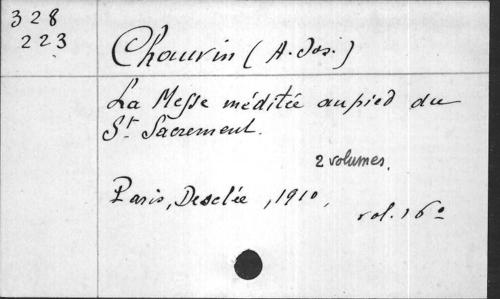 328
223
Chauvin (A. Jos.)
La Messe méditée au pied du
St Sacrement.
2 volumes.
Paris, Desclée, 1910,
vol. 16°